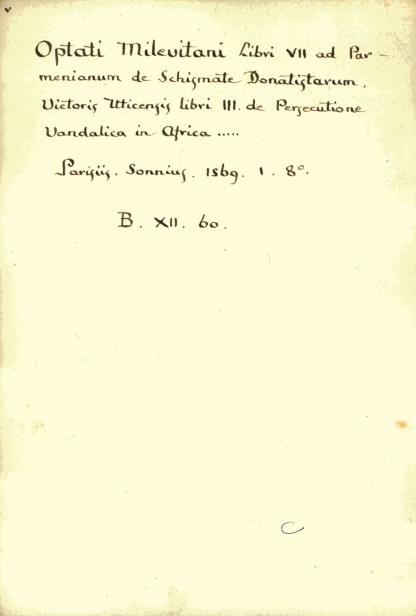 Optati Milevitani Libri VII ad Par-
menianum de Schismate Donatistarum,
Victoris Uticensis libri III. de Persecutione
Vandalica in Africa .....
Parisiis. Sonnius. 1569. 1. 8º.
B. XII. 60.